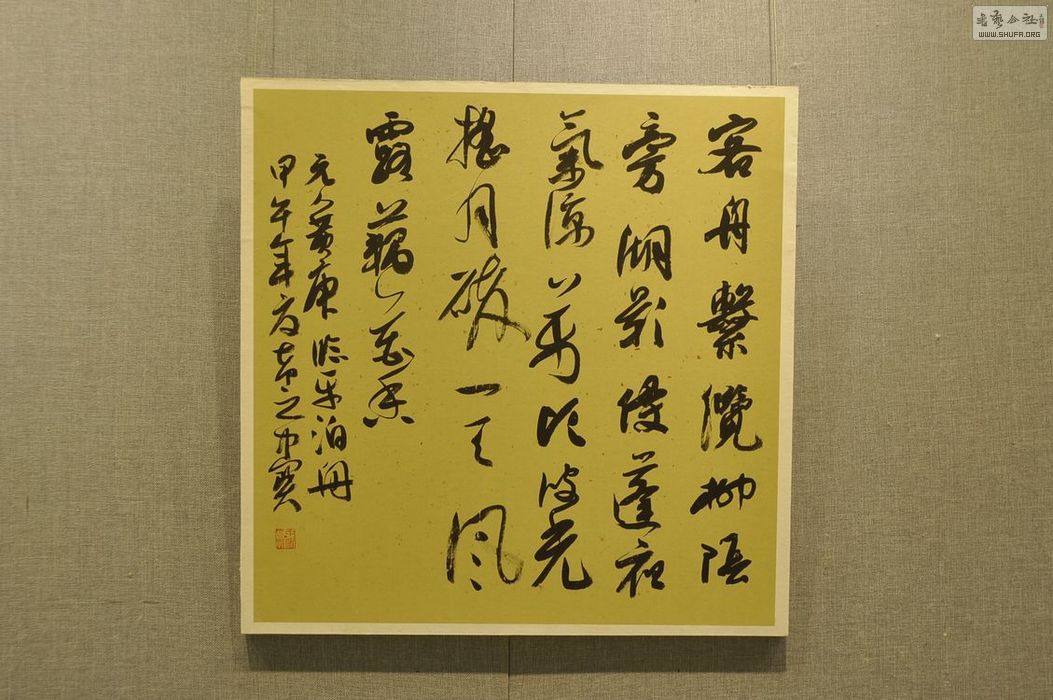 客舟繫纜柳陰
旁湖影侵蓬夜
氣涼萬頃波光
搖月碎一天風
露藕花香
元人黃庚臨平泊舟
甲午年之寶
書藝公社
WWW.SHUFA.ORG